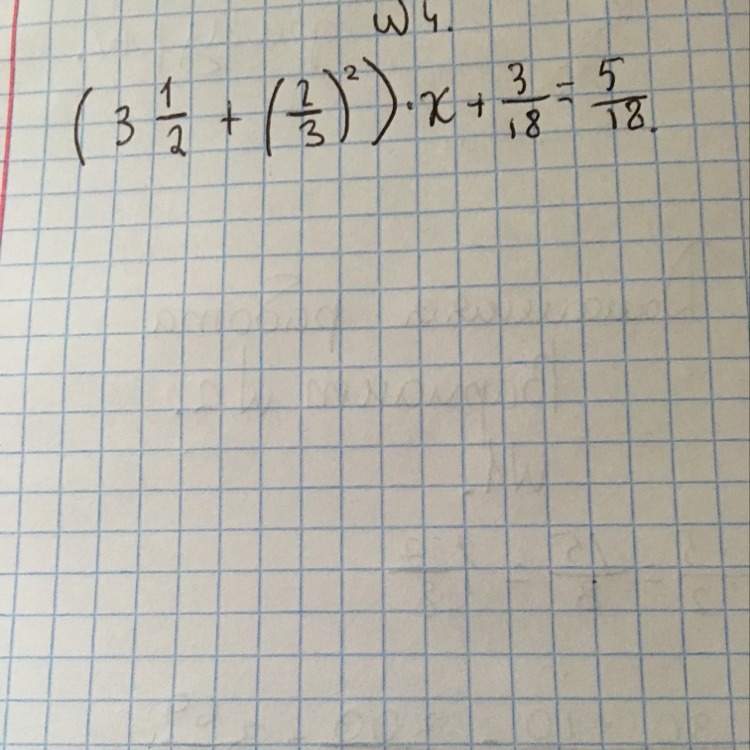 № 4.
(3 1/2 + (2/3)²) · x + 3/18 = 5/18.